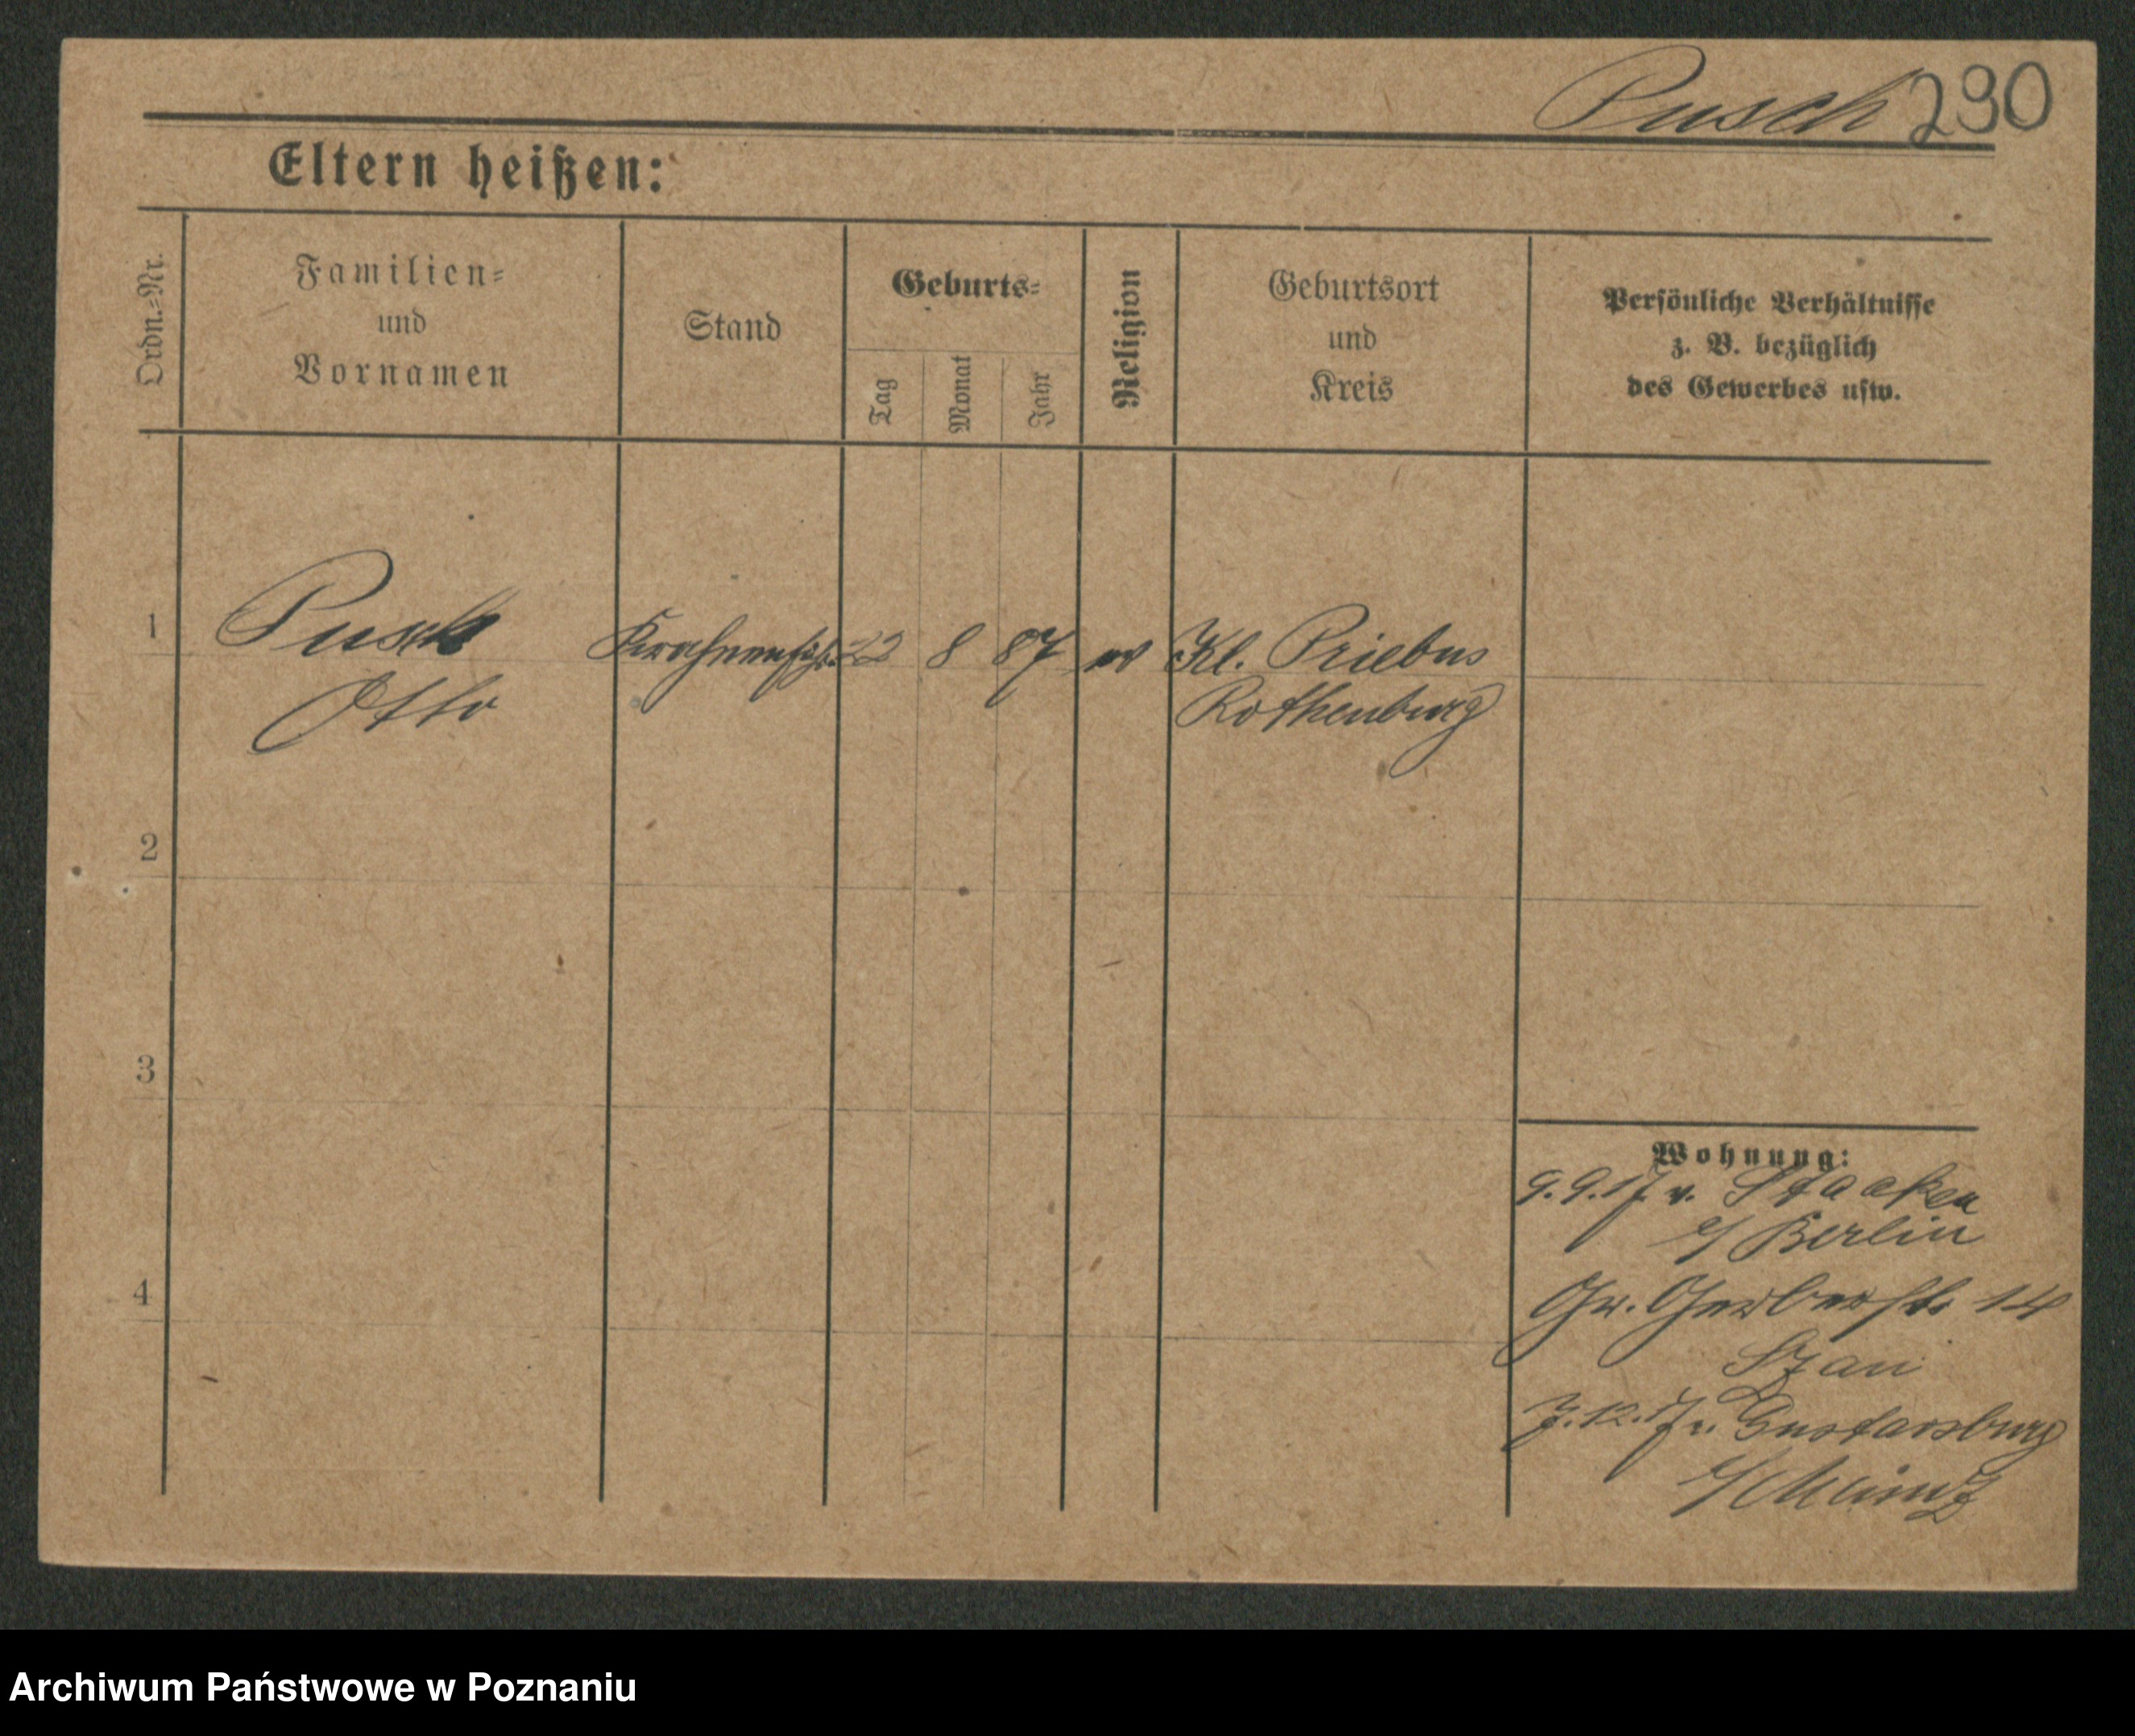 Pusch 290
Eltern heißen:
Ordn.-Nr.
Familien-
und
Vornamen
Stand
Geburts-
Tag
Monat
Jahr
Religion
Geburtsort
und
Kreis
Persönliche Verhältnisse
z. B. bezüglich
des Gewerbes usw.
1 Pusch 22 8 87 ev Kl. Priebus
Otto Rothenburg
2
3
4
Wohnung:
9.9.17 v. Staaken
b/ Berlin
Gr. Gerberstr 14
7.12.17 n. Gustavsburg
b/ Mainz
Archiwum Państwowe w Poznaniu